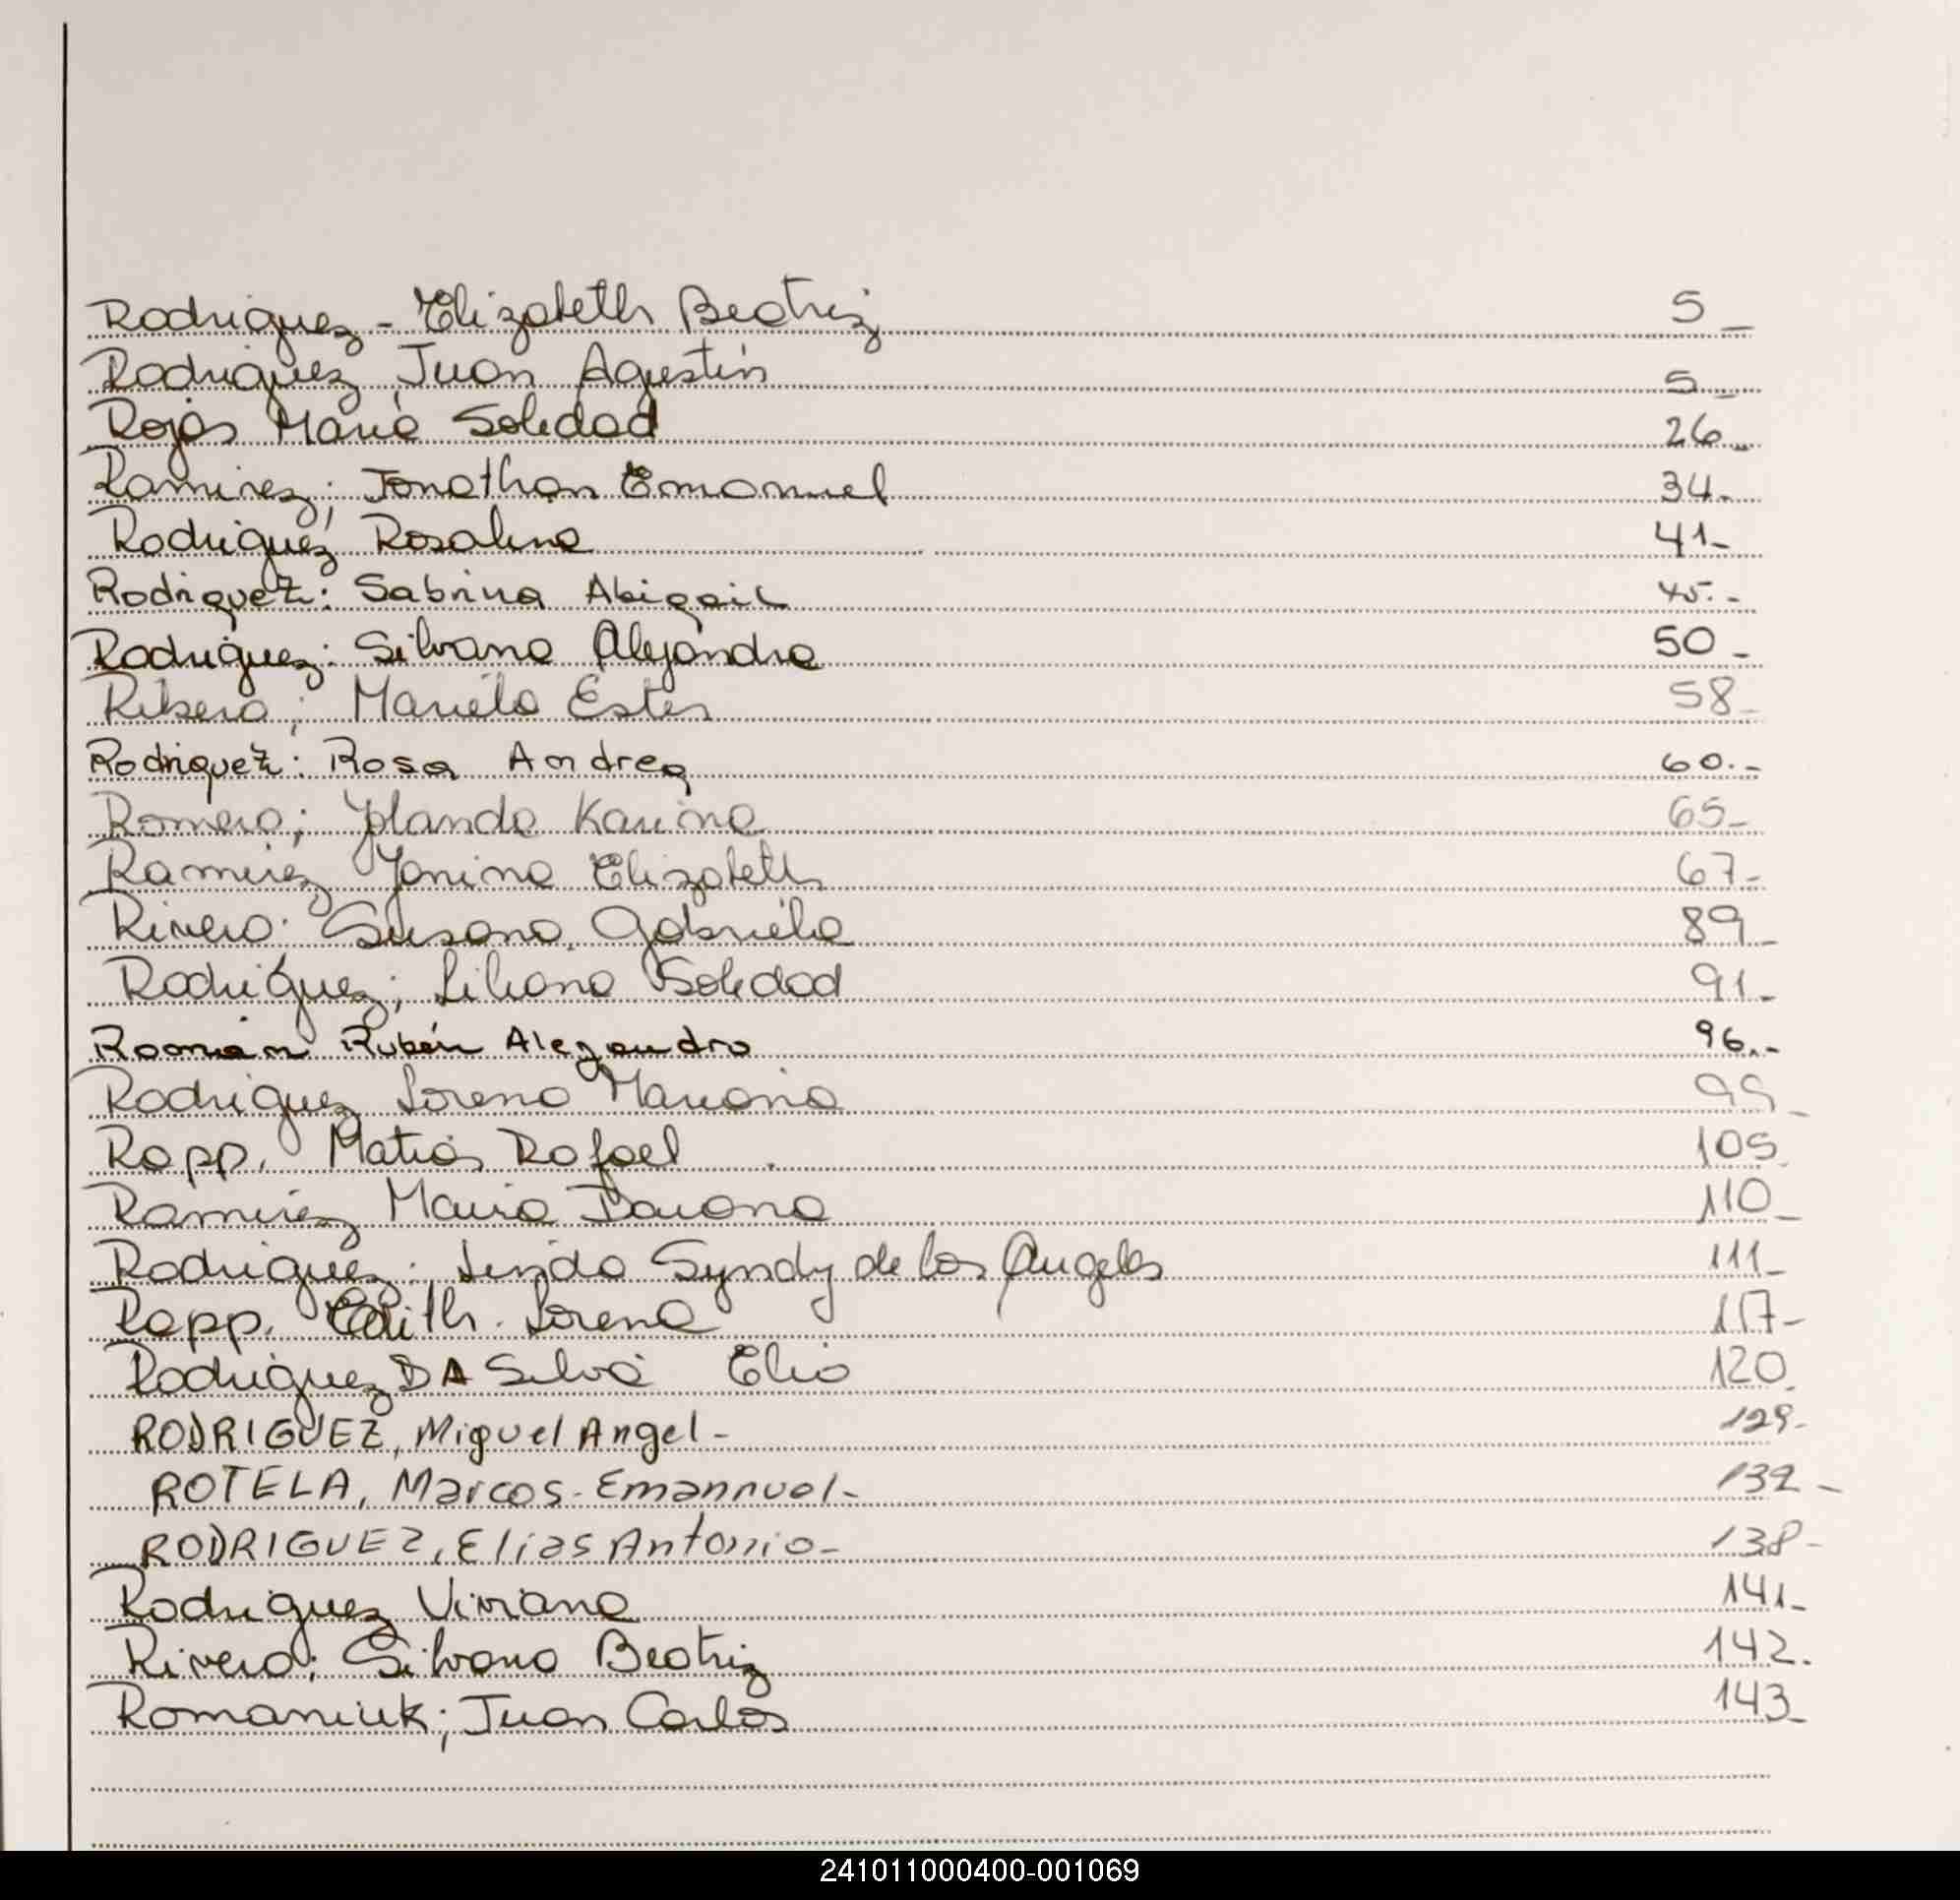 Rodriguez - Elizabeth Beatriz 5_
Rodriguez Juan Agustin 5_
Rojas Maria Soledad 26_
Ramirez; Jonathan Emanuel 34_
Rodriguez Rosalina 41_
Rodriguez: Sabrina Abigail 45.-
Rodriguez: Silvana Alejandra 50_
Ribero; Mariela Ester 58_
Rodriguez: Rosa Andrea 60.-
Romero; Yolanda Karina 65_
Ramirez Yanina Elizabeth 67_
Rivero. Susana Gabriela 89_
Rodriguez; Liliana Soledad 91_
Roman Rubén Alejandro 96.-
Rodriguez Lorena Mariana 99_
Rapp. Matias Rafael 105_
Ramirez Maria Daiana 110_
Rodriguez. Linda Syndy de los Angeles 111_
Rapp. Edith. Lorena 117_
Rodriguez DA Silva Elio 120_
RODRIGUEZ, Miguel Angel- 129-
ROTELA, Marcos-Emannuel- 132-
RODRIGUEZ, Elias Antonio- 138-
Rodriguez Viviana 141_
Rivero; Silvana Beatriz 142.
Romaniuk; Juan Carlos 143_
241011000400-001069